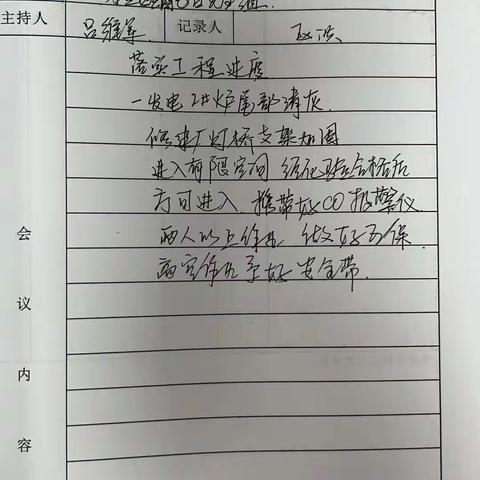 主持人 吕维军 记录人
落实工程进度
一发电2#炉尾部清灰.
修建厂灯桥支架加固
进入有限空间 经化验合格后
方可进入. 携带好CO报警仪.
两人以上作业 做好互保.
高空作业系好安全带.
会议内容